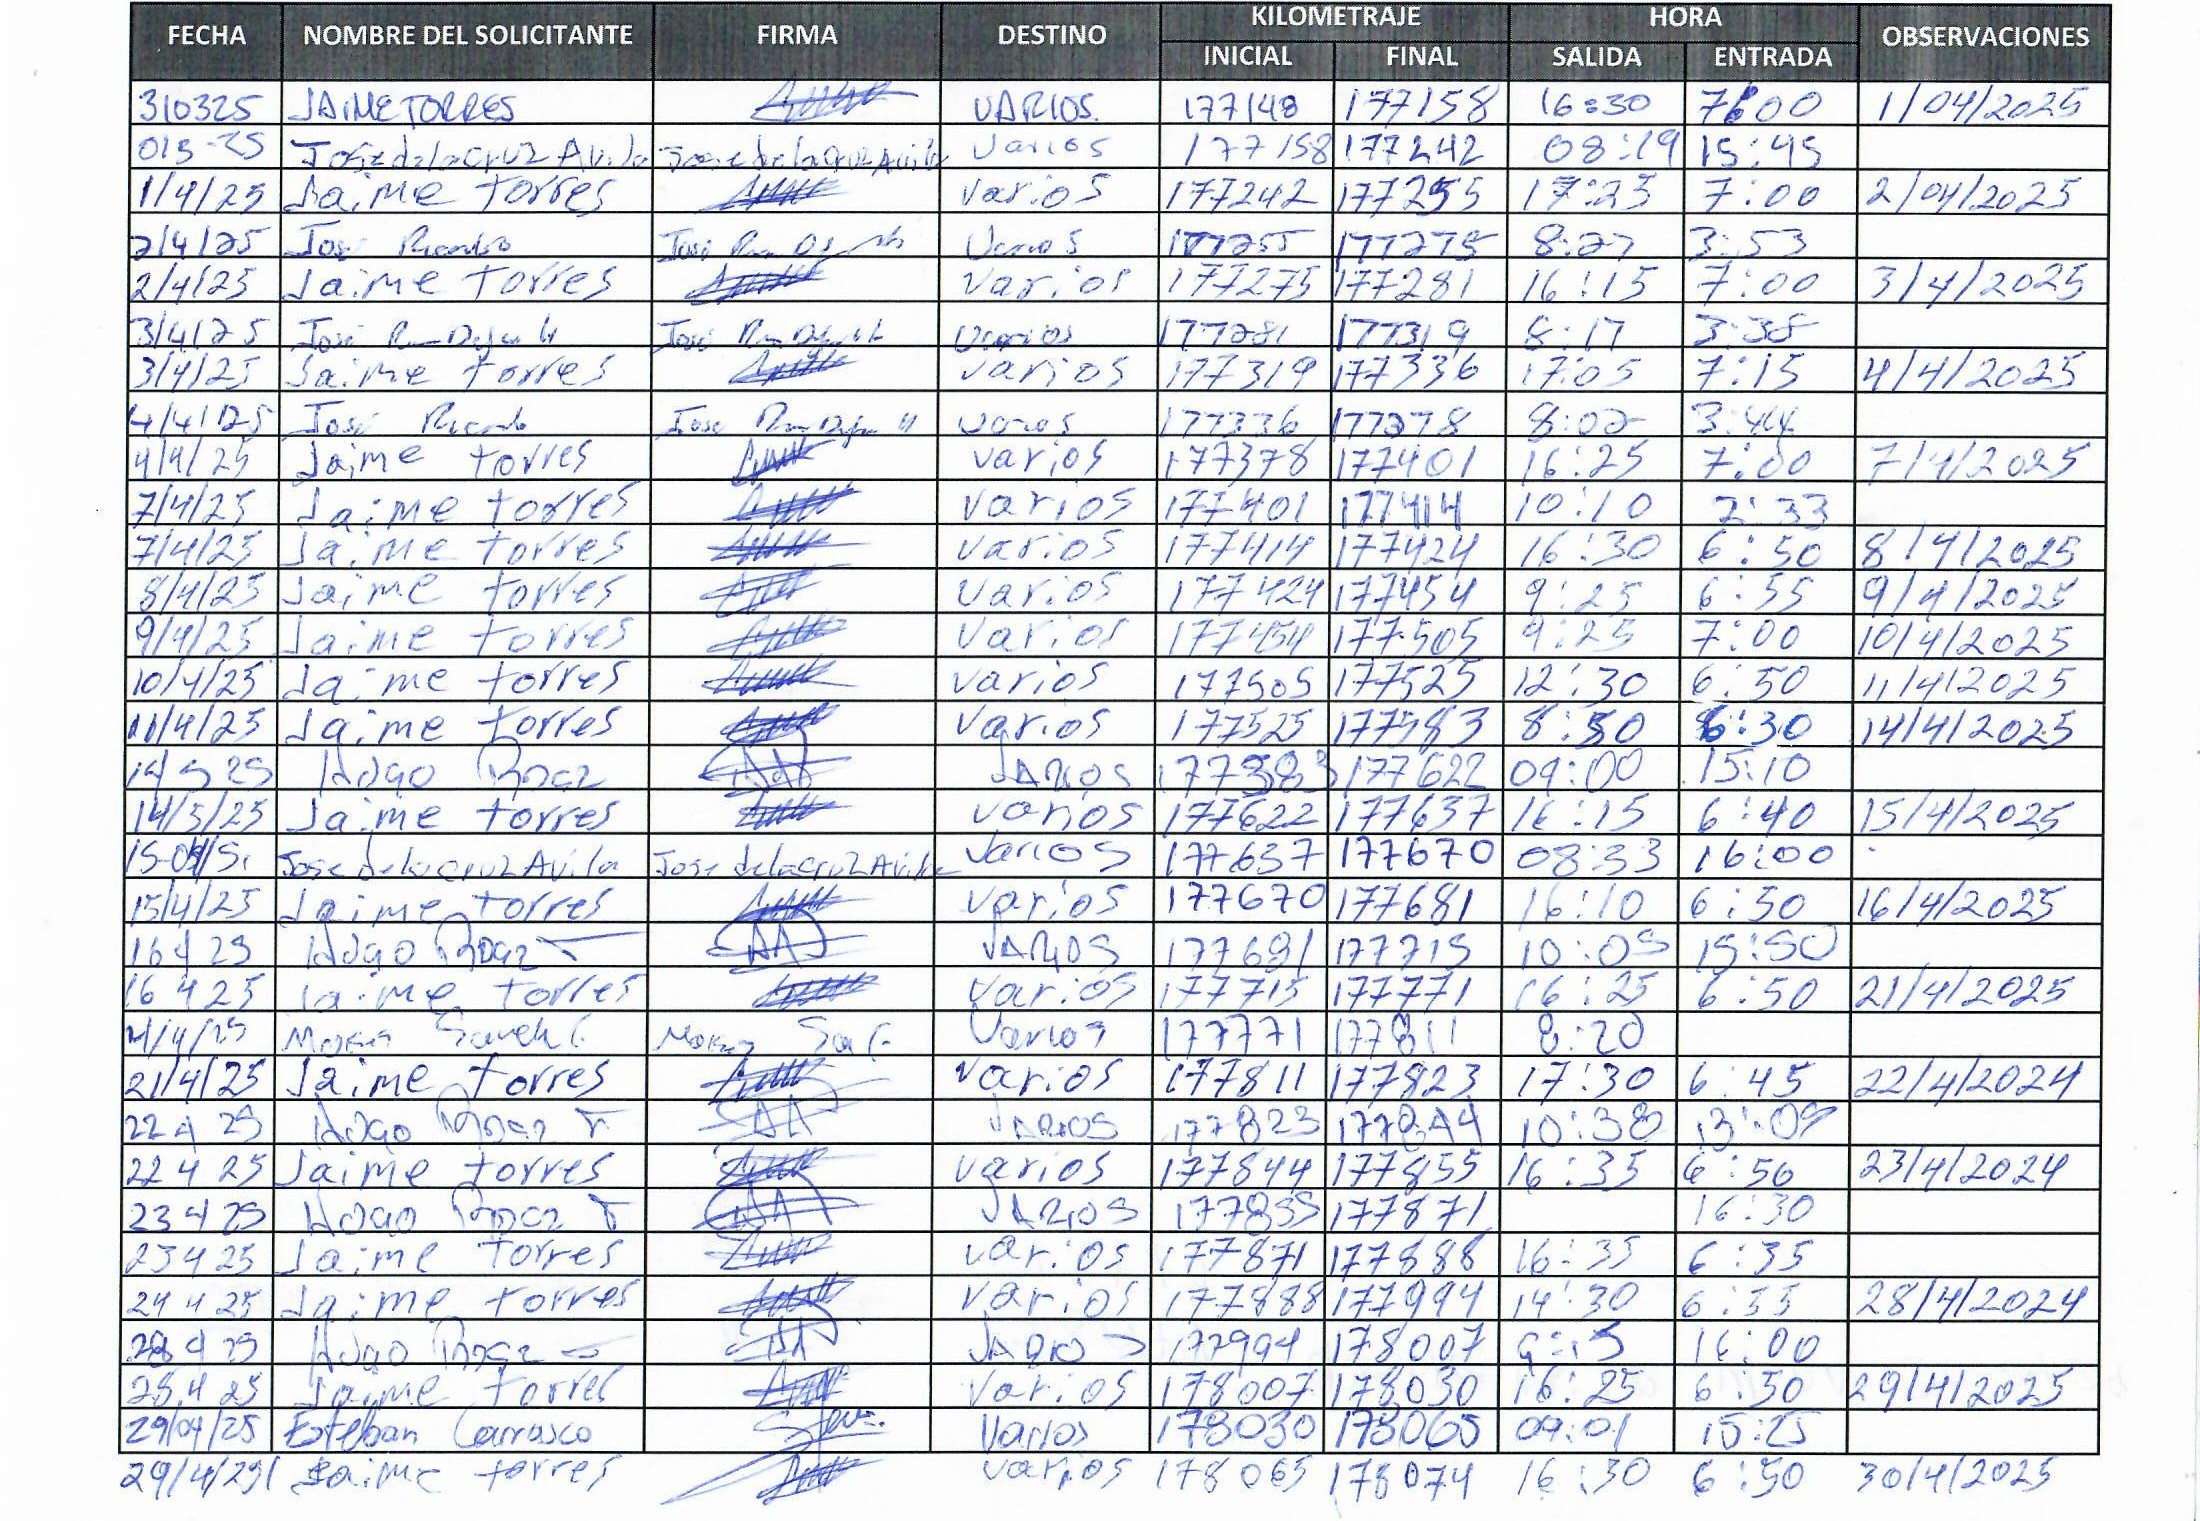 FECHA NOMBRE DEL SOLICITANTE FIRMA DESTINO KILOMETRAJE HORA OBSERVACIONES
INICIAL FINAL SALIDA ENTRADA
310325 JAIME TORRES VARIOS. 177148 177158 16:30 7:00 1/04/2025
Jose de la cruz Avila Jose de la cruz Avila Varios 177158 177242 08:19 15:45
1/4/25 Jaime torres varios 177242 177255 17:23 7:00 2/04/2025
2/4/25 José Ricardo José Varios 177255 177275 8:27 3:53
2/4/25 Jaime torres varios 177275 177281 16:15 7:00 3/4/2025
3/4/25 José José Varios 177281 177319 8:17 3:38
3/4/25 Jaime torres varios 177319 177336 17:05 7:15 4/4/2025
4/4/25 José Ricardo José varios 177336 177378 8:02 3:44
4/4/25 Jaime torres varios 177378 177401 16:25 7:00 7/4/2025
7/4/25 Jaime torres varios 177401 177414 10:10 2:33
7/4/25 Jaime torres varios 177414 177424 16:30 6:50 8/4/2025
8/4/25 Jaime torres varios 177424 177454 9:25 6:55 9/4/2025
9/4/25 Jaime torres varios 177454 177505 9:25 7:00 10/4/2025
10/4/25 Jaime torres varios 177505 177525 12:30 6:50 11/4/2025
11/4/25 Jaime torres varios 177525 177583 8:50 6:30 14/4/2025
Hugo VARIOS 177583 177622 09:00 15:10
14/5/25 Jaime torres varios 177622 177637 16:15 6:40 15/4/2025
Jose de la cruz Avila Jose de la cruz Avila Varios 177637 177670 08:33 16:00
15/4/25 Jaime torres varios 177670 177681 16:10 6:50 16/4/2025
16 4 25 Hugo VARIOS 177681 177715 10:05 15:50
16 4 25 Jaime torres varios 177715 177771 16:25 6:50 21/4/2025
Varios 177771 177811 8:20
21/4/25 Jaime torres varios 177811 177823 17:30 6:45 22/4/2024
22 4 25 Hugo VARIOS 177823 177844 10:38 13:09
22 4 25 Jaime torres varios 177844 177855 16:35 6:50 23/4/2024
23 4 25 Hugo VARIOS 177855 177871 16:30
23 4 25 Jaime torres varios 177871 177888 16:35 6:35
24 4 25 Jaime torres varios 177888 177994 14:30 6:35 28/4/2024
28 4 25 Hugo VARIOS 177994 178007 9:15 16:00
28 4 25 Jaime torres varios 178007 178030 16:25 6:50 29/4/2025
29/04/25 Esteban Carrasco Varios 178030 178065 09:01 15:25
29/4/25 Jaime torres varios 178065 178074 16:30 6:50 30/4/2025